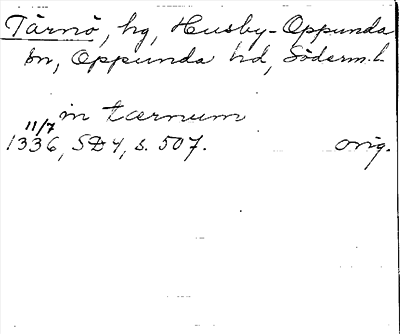 Tärnö, hg, Husby-Oppunda
sn, Oppunda hd, Söderm.l.
in tærnum
11/7
1336, SD4, s. 507. orig.